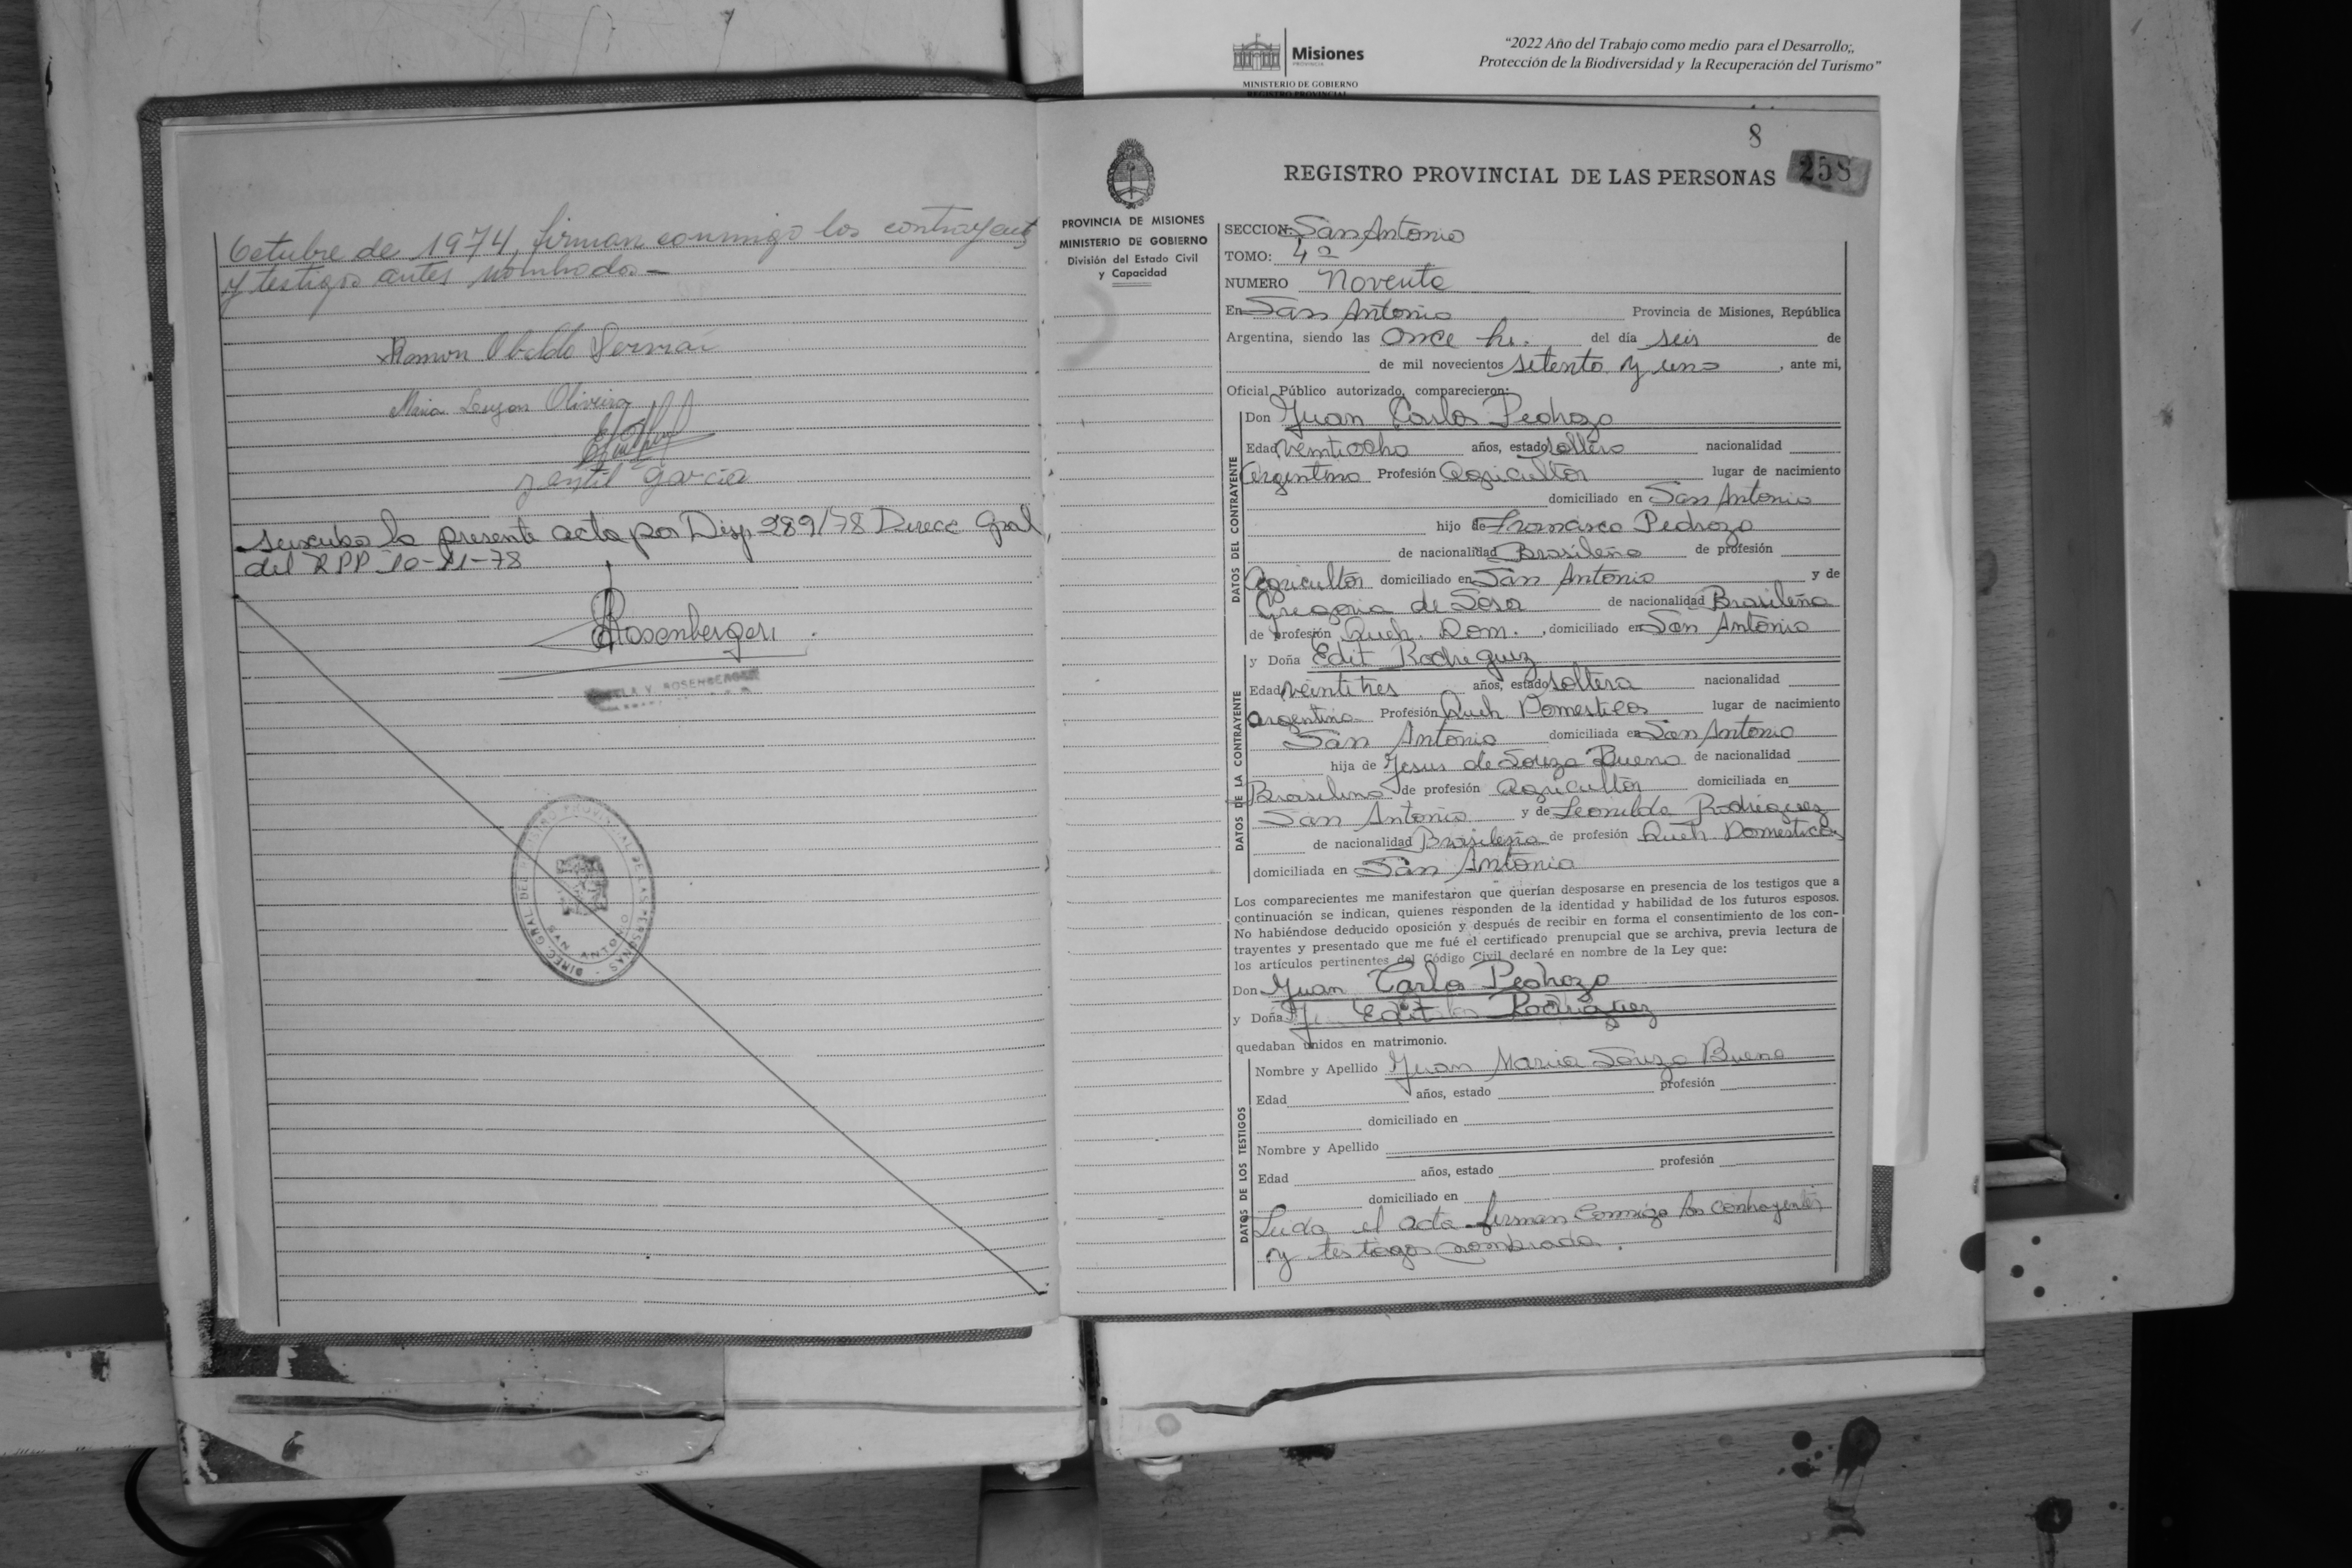 Misiones
PROVINCIA
MINISTERIO DE GOBIERNO
REGISTRO PROVINCIAL
"2022 Año del Trabajo como medio para el Desarrollo;,
Protección de la Biodiversidad y la Recuperación del Turismo"
Octubre de 1974, firman conmigo los contrayent
y testigos antes nombrados –
Ramon Obaldo
Maria Luyan Oliveira
garcia
la presente acta por Disp 289/78 Direcc Gral
del RPP 10-11-78
Rosenberger
V. ROSENBERGER
DIREC. GRAL. DEL REGISTRO PROVINCIAL DE LAS PERSONAS
SAN ANTONIO
8
258
REGISTRO PROVINCIAL DE LAS PERSONAS
PROVINCIA DE MISIONES
MINISTERIO DE GOBIERNO
División del Estado Civil
y Capacidad
SECCION: San Antonio
TOMO: 4º
NUMERO Noventa
En San Antonio Provincia de Misiones, República
Argentina, siendo las Once hs. del día seis de
de mil novecientos setenta y uno, ante mi,
Oficial Público autorizado, comparecieron:
DATOS DEL CONTRAYENTE
Don Juan Carlos Pedrozo
Edad veintiocho años, estado soltero nacionalidad
argentino Profesión Agricultor lugar de nacimiento
domiciliado en San Antonio
hijo de Francisco Pedrozo
de nacionalidad Brasileño de profesión
Agricultor domiciliado en San Antonio y de
Gregoria de Sosa de nacionalidad Brasileña
de profesión Queh. Dom., domiciliado en San Antonio
DATOS DE LA CONTRAYENTE
y Doña Edit Rodriguez
Edad veintitres años, estado soltera nacionalidad
argentina Profesión Queh Domesticos lugar de nacimiento
San Antonio domiciliada en San Antonio
hija de Jesus de Souza Bueno de nacionalidad
Brasilena de profesión Agricultor domiciliada en
San Antonio y de Leonilda Rodriguez
de nacionalidad Brasileña de profesión Queh Domesticos
domiciliada en San Antonio
Los comparecientes me manifestaron que querían desposarse en presencia de los testigos que a
continuación se indican, quienes responden de la identidad y habilidad de los futuros esposos.
No habiéndose deducido oposición y después de recibir en forma el consentimiento de los con-
trayentes y presentado que me fué el certificado prenupcial que se archiva, previa lectura de
los artículos pertinentes del Código Civil declaré en nombre de la Ley que:
Don Juan Carlos Pedrozo
y Doña Edit Rodriguez
quedaban unidos en matrimonio.
DATOS DE LOS TESTIGOS
Nombre y Apellido Juan Maria Souza Bueno
Edad años, estado profesión
domiciliado en
Nombre y Apellido
Edad años, estado profesión
domiciliado en
Leida el acta firman conmigo los contrayentes
y testigos nombrada.